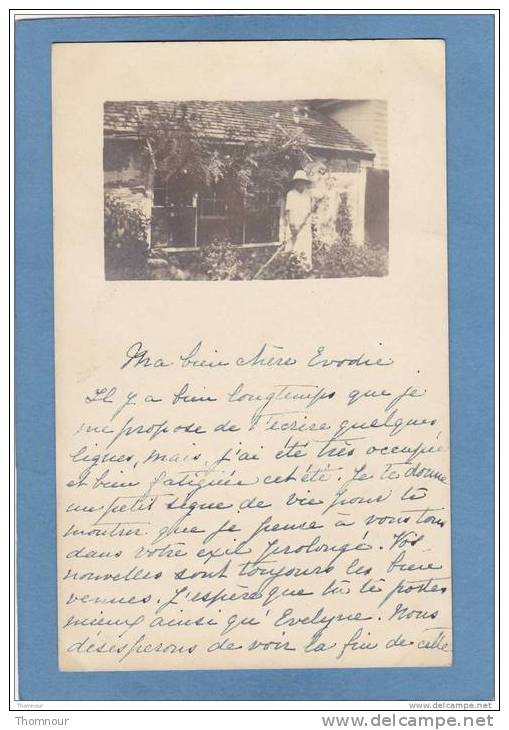 Ma bien chère Evodie
Il y a bien longtemps que je
me propose de t'écrire quelques
lignes, mais, j'ai été très occupée
et bien fatiguée cet été. Je te donne
un petit signe de vie pour te
montrer que je pense à vous tous
dans votre exil prolongé. Vos
nouvelles sont toujours les bien
venues. J'espère que tu te portes
mieux ainsi qu'Evelyne. Nous
désesperons de voir la fin de cette
Thomnour
www.delcampe.net
Thomnour
http://www.delcampe.net